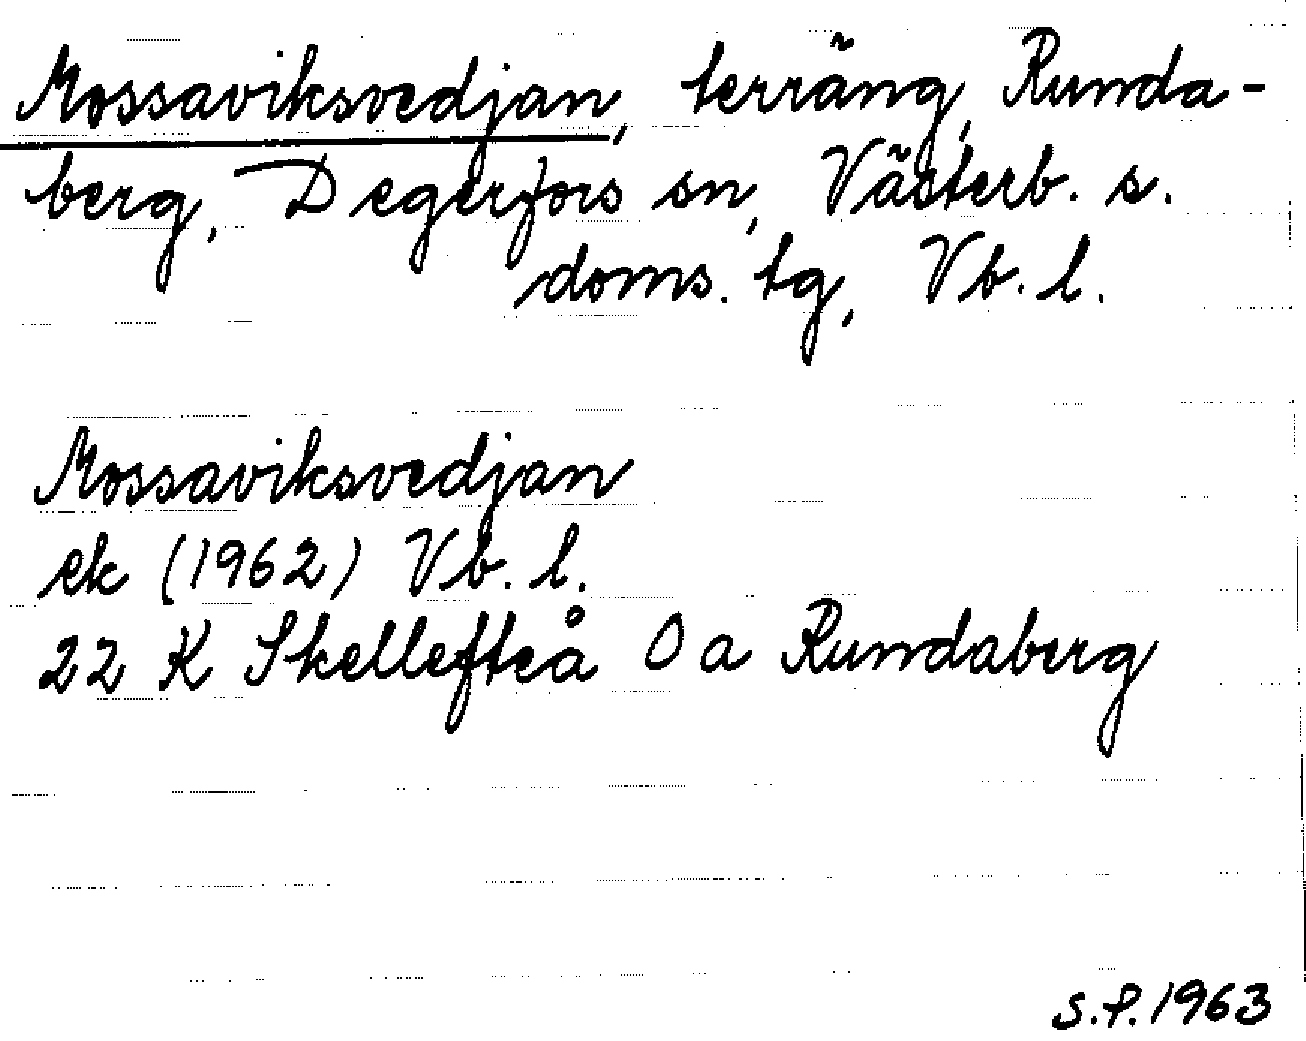 Mossaviksvedjan, terräng, Runda-
berg, Degerfors sn, Västerb. s.
doms. tg, Vb. l.
Mossaviksvedjan
ek (1962) Vb. l.
22 K Skellefteå 0 a Rundaberg
S.P. 1963